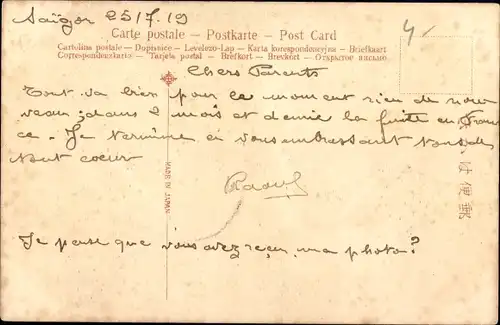 Saïgon 25/7.19
4-
Carte postale – Postkarte – Post Card
Cartolina postale – Dopisnice – Levelezo-Lap – Karta korespondencyjna – Briefkaart
Correspondenzkarta – Tarjeta postal – Brefkort – Brevkort – Открытое письмо
Chers Parents
Tout va bien pour le moment rien de nou
veau; dans 2 mois et demie la fuite en Fran
ce. Je termine en vous embrassant tous de
tout coeur
Raoul
MADE IN JAPAN
便郵
Je pense que vous avez reçu ma photo?